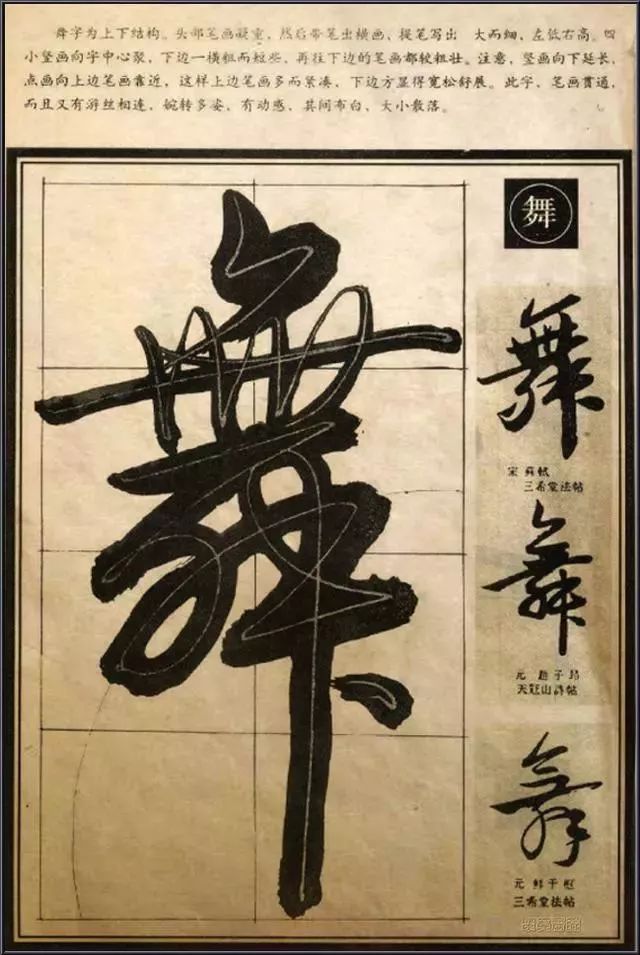 舞字为上下结构。头部笔画凝重，然后带笔出横画，提笔写出　大而细，左低右高。四
小竖画向字中心聚，下边一横粗而短些，再往下边的笔画都较粗壮。注意，竖画向下延长，
点画向上边笔画靠近，这样上边笔画多而紧凑，下边方显得宽松舒展。此字，笔画贯通，
而且又有游丝相连，婉转多姿，有动感，其间布白，大小散落。
舞
舞
舞
宋 蘇軾
三希堂法帖
舞
元 趙子昂
天冠山詩帖
舞
元 鮮于樞
三希堂法帖